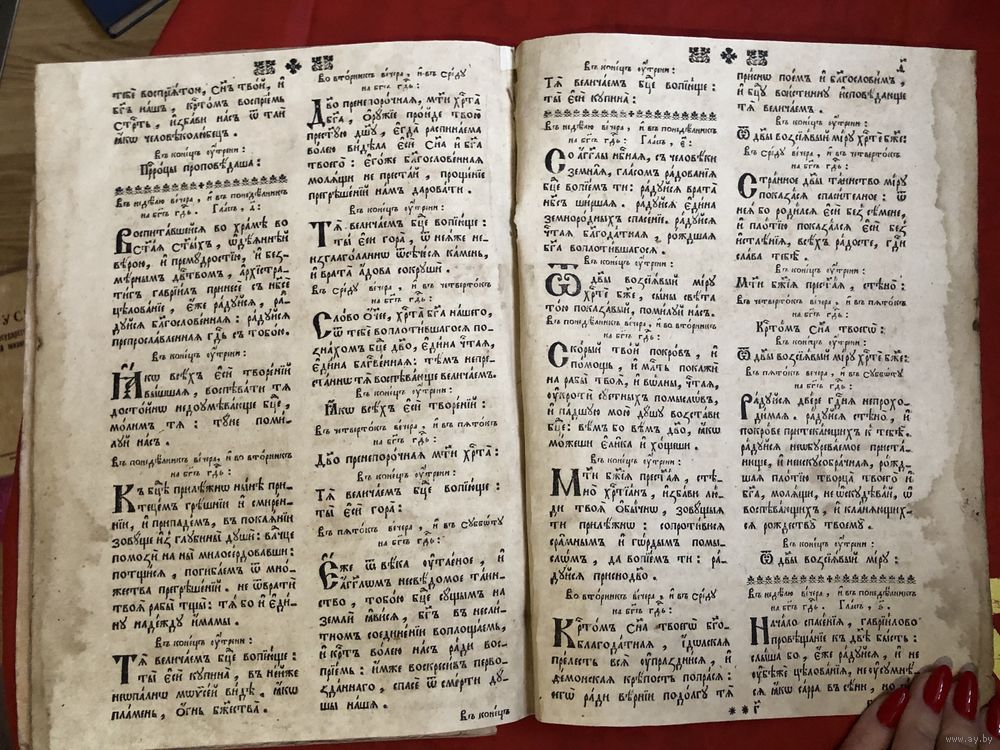 тебѐ воспрїѧ́томъ, Сн҃ъ тво́й, и҆
бг҃ъ на́шъ, кр҇то́мъ воспрїе́мь
стр҇ть, и҆зба́ви на́съ ѿ тлѝ
ꙗ҆́кѡ человѣколю́бецъ.
Въ коне́цъ оу҆́трени:
Прⷪ҇ро́цы проповѣ́даша:
Въ недѣ́лю ве́чера, и҆ въ понедѣ́льникъ
на бг҃ъ гд҇ь. Гла́съ, д҃:
Воспита́вшейсѧ во хра́мѣ во
ст҃а̑ѧ ст҃ы́хъ, ѡ҆дѣ́ѧнней
вѣ́рою, и҆ премꙋ́дростїю, и҆ без-
мѣ́рнымъ дв҃ствомъ, а҆рхїстра-
ти́гъ гаврїи́лъ принесѐ съ нб҃сѐ
цѣлова́нїе, є҆́же ра́дꙋйсѧ, ра-
дꙋйсѧ блг҃ослове́ннаѧ: ра́дꙋйсѧ
препросла́вленнаѧ гд҇ь съ тобо́ю.
Въ коне́цъ оу҆́трени:
Ꙗ҆́кѡ всѣ́хъ є҆сѝ творе́нїй
вы́шшаѧ, воспѣва́ти тѧ̀
досто́йнѡ недоꙋмѣва́юще бц҇е,
мо́лимъ тѧ̀: тꙋ́не поми-
лꙋй на́съ.
Въ понедѣ́льникъ ве́чера, и҆ во вто́рникъ
на бг҃ъ гд҇ь:
Къ бц҇ѣ прилѣ́жнѡ нн҃ѣ при-
тецѐмъ грѣ́шнїи и҆ смире́н-
нїи, и҆ припаде́мъ, въ покаѧ́нїи
зовꙋ́ще и҆з̾ глꙋбины̀ дꙋшѝ: влⷣчце
помозѝ на ны̀ милосе́рдовавши:
потщи́сѧ, погиба́емъ ѿ мно́-
жества прегрѣше́нїй. не ѿвратѝ
твоѧ̑ рабы̑ тщы̀: тѧ́ бо и҆ є҆ди́-
нꙋ наде́ждꙋ и҆́мамы.
Въ коне́цъ оу҆́трени:
Тѧ̀ велича́емъ бц҇е вопїю́ще:
ты̀ є҆сѝ кꙋпина̀, въ не́йже
неѡпа́льнѡ мѡѷсе́й ви́дѣ. ꙗ҆́кѡ
пла́мень, ѻ҆́гнь бж҇ества̀.
Во вто́рникъ ве́чера, и҆ въ сре́дꙋ
на бг҃ъ гд҇ь:
Дв҃о пренепоро́чнаѧ, мт҃и хр҇та̀
бг҃а, ѻ҆рꙋ́жїе про́йде твою̀
прест҃ꙋ́ю дш҃ꙋ, є҆гда̀ распина́ема
во́лею ви́дѣла є҆сѝ сн҃а и҆ бг҃а
твоегѡ̀: є҆го́же блг҃ослове́ннаѧ
молѧ́щи не преста́й, проще́нїе
прегрѣше́нїй на́мъ дарова́ти.
Въ коне́цъ оу҆́трени:
Тѧ̀ велича́емъ бц҇е вопїю́ще:
ты̀ є҆сѝ гора̀, ѿ неѧ́же не-
изглаго́ланнѡ ѿсѣ́чесѧ ка́мень,
и҆ врата̀ а҆́дова сокрꙋшѝ.
Въ сре́дꙋ ве́чера, и҆ въ четверто́къ
на бг҃ъ гд҇ь:
Сло́во ѻ҆́ч҃ее, хр҇та̀ бг҃а на́шего,
ѿ тебє̀ воплоти́вшагосѧ по-
зна́хомъ бц҇е дв҃о, є҆ди́на чи́таѧ,
є҆ди́на блг҃ве́ннаѧ: тѣ́мъ непре-
ста́ннѡ тѧ̀ воспѣва́юще велича́емъ.
Въ коне́цъ оу҆́трени:
Ꙗ҆́кѡ всѣ́хъ є҆сѝ творе́нїй:
Въ четверто́къ ве́чера, и҆ въ пѧто́къ
на бг҃ъ гд҇ь:
Дв҃о пренепоро́чнаѧ мт҃и хр҇та̀:
Въ коне́цъ оу҆́трени:
Тѧ̀ велича́емъ бц҇е вопїю́ще:
ты̀ є҆сѝ гора̀:
Въ пѧто́къ ве́чера, и҆ въ сꙋббѡ́тꙋ
на бг҃ъ гд҇ь:
Є҆́же ѿ вѣ́ка оу҆тае́ное, и҆
а҆́гг҃лѡмъ несвѣ́домое та́ин-
ство, тобо́ю бц҇е сꙋ́щымъ на
землѝ ꙗ҆ви́сѧ, бг҃ъ въ несли́-
тномъ соедине́нїи воплоща́емь,
и҆ кр҇тъ во́лею на́съ ра́ди вос-
прїе́мь: и҆́мже воскреси́въ перво-
зда́ннаго, спасѐ ѿ сме́рти дꙋ́-
шы на́шѧ.
Въ коне́цъ
Въ коне́цъ оу҆́трени:
Тѧ̀ велича́емъ бц҇е вопїю́ще:
ты̀ є҆сѝ кꙋпина̀:
Въ недѣ́лю ве́чера, и҆ въ понедѣ́льникъ
на бг҃ъ гд҇ь: Гла́съ, є҃:
Со а҆́гг҃лы нб҇наѧ, съ человѣ́ки
земна́ѧ, гла́сомъ ра́дованїѧ
бц҇е вопїе́мъ ти: ра́дꙋйсѧ врата̀
нб҃съ ши́ршаѧ. ра́дꙋйсѧ є҆ди́на
земноро́дныхъ спасе́нїе. ра́дꙋйсѧ
чт҇аѧ благода́тнаѧ, ро́ждшаѧ
бг҃а воплоти́вшагосѧ.
Въ коне́цъ оу҆́трени:
Ѿ дв҃ы возсїѧ́вый мі́рꙋ
хр҇тѐ бж҃е, сы́ны свѣ́та
то́ю показа́вый, поми́лꙋй на́съ.
Въ понедѣ́льникъ ве́чера, и҆ во вто́рникъ
на бг҃ъ гд҇ь:
Ско́рый тво́й покро́въ, и҆
по́мощь, и҆ млⷭ҇ть покажѝ
на рабы̑ твоѧ̑, и҆ вѡ́лны, чт҇аѧ,
оу҆кротѝ сꙋ́етныхъ по́мыслѡвъ,
и҆ па́дшꙋю мою̀ дꙋ́шꙋ возста́ви
бц҇е: вѣ́мъ бо вѣ́мъ дв҃о, ꙗ҆́кѡ
мо́жеши є҆ли́ка и҆ хо́щеши.
Въ коне́цъ оу҆́трени:
Мт҃и бж҃їѧ прест҃а́ѧ, стѣ-
но̀ хр҇тїа́нъ, и҆зба́ви лю́-
ди твоѧ̑ ѻ҆бы́чнѡ, зовꙋ́щыѧ
ти̑ прилѣ́жнѡ: сопроти́висѧ
сра́мнымъ и҆ гѡ́рдымъ по́мы-
слѡмъ, да вопїе́мъ ти: ра́-
дꙋйсѧ приснодв҃о.
Во вто́рникъ ве́чера, и҆ въ сре́дꙋ
на бг҃ъ гд҇ь:
Кр҇то́мъ сн҃а твоегѡ̀ бг҃о-
благода́тнаѧ, і҆́дѡльскаѧ
пре́лесть всѧ̀ оу҆праздни́сѧ, и҆
де́монскаѧ крѣ́пость попра́сѧ:
сегѡ̀ ра́ди вѣ́рнїи по до́лгꙋ тѧ̀
г҃
при́снѡ пое́мъ и҆ благослови́мъ,
и҆ бц҇ꙋ вои́стиннꙋ и҆сповѣ́дающе
тѧ̀ велича́емъ.
Въ коне́цъ оу҆́трени:
Ѿ дв҃ы возсїѧ́вый мі́рꙋ хр҇тѐ бж҃е:
Въ сре́дꙋ ве́чера, и҆ въ четверто́къ
на бг҃ъ гд҇ь:
Стра́нное дв҃ы та́инство мі́рꙋ
показа́сѧ спаси́тельное: ѿ
неѧ́ бо роди́лсѧ є҆сѝ без̾ сѣ́мене,
и҆ пло́тїю показа́лсѧ є҆сѝ без̾
и҆стлѣ́нїѧ, всѣ́хъ ра́досте, гд҇и
сла́ва тебѣ̀.
Въ коне́цъ оу҆́трени:
Мт҃и бж҃їѧ прест҃а́ѧ, стѣно̀:
Въ четверто́къ ве́чера, и҆ въ пѧто́къ
на бг҃ъ гд҇ь:
Кр҇то́мъ сн҃а твоегѡ̀:
Въ коне́цъ оу҆́трени:
Ѿ дв҃ы возсїѧ́вый мі́рꙋ хр҇тѐ бж҃е:
Въ пѧто́къ ве́чера, и҆ въ сꙋббѡ́тꙋ
на бг҃ъ гд҇ь:
Ра́дꙋйсѧ две́ре гд҇нѧ непрохо-
ди́маѧ. ра́дꙋйсѧ стѣно̀, и҆
покро́ве притека́ющихъ к̾ тебѣ̀.
ра́дꙋйсѧ неѡбꙋрева́емое приста́-
нище, и҆ неискꙋсобра́чнаѧ, ро́жд-
шаѧ пло́тїю творца̀ твоего̀ и҆
бг҃а, молѧ́щи, не ѡ҆скꙋдѣва́й, ѡ҆
воспѣва́ющихъ, и҆ кла́нѧющих-
сѧ рождествꙋ̀ твоемꙋ̀.
Въ коне́цъ оу҆́трени:
Ѿ дв҃ы возсїѧ́вый мі́рꙋ:
Въ недѣ́лю ве́чера, и҆ въ понедѣ́льникъ.
на бг҃ъ гд҇ь. Гла́съ, ѕ҃.
Нача́ло спасе́нїѧ, гаврїи́лово
провѣща́нїе къ дв҃ѣ бы́сть:
слы́ша бо, є҆́же ра́дꙋйсѧ, и҆ не
оу҆бѣжѐ цѣлова́нїѧ, не оу҆сꙋмнѣ́-
сѧ ꙗ҆́кѡ са́рра въ сѣ́ни, но
www.ay.by